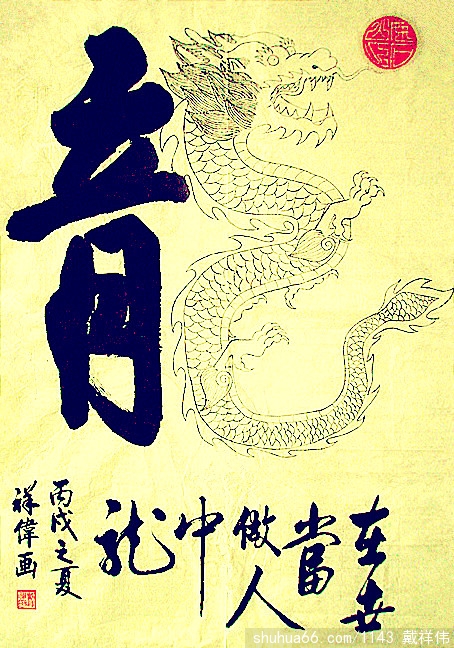 龍
在世
當
做人
中
龍
丙戌之夏
祥偉画
shuhua66.com/1143 戴祥伟